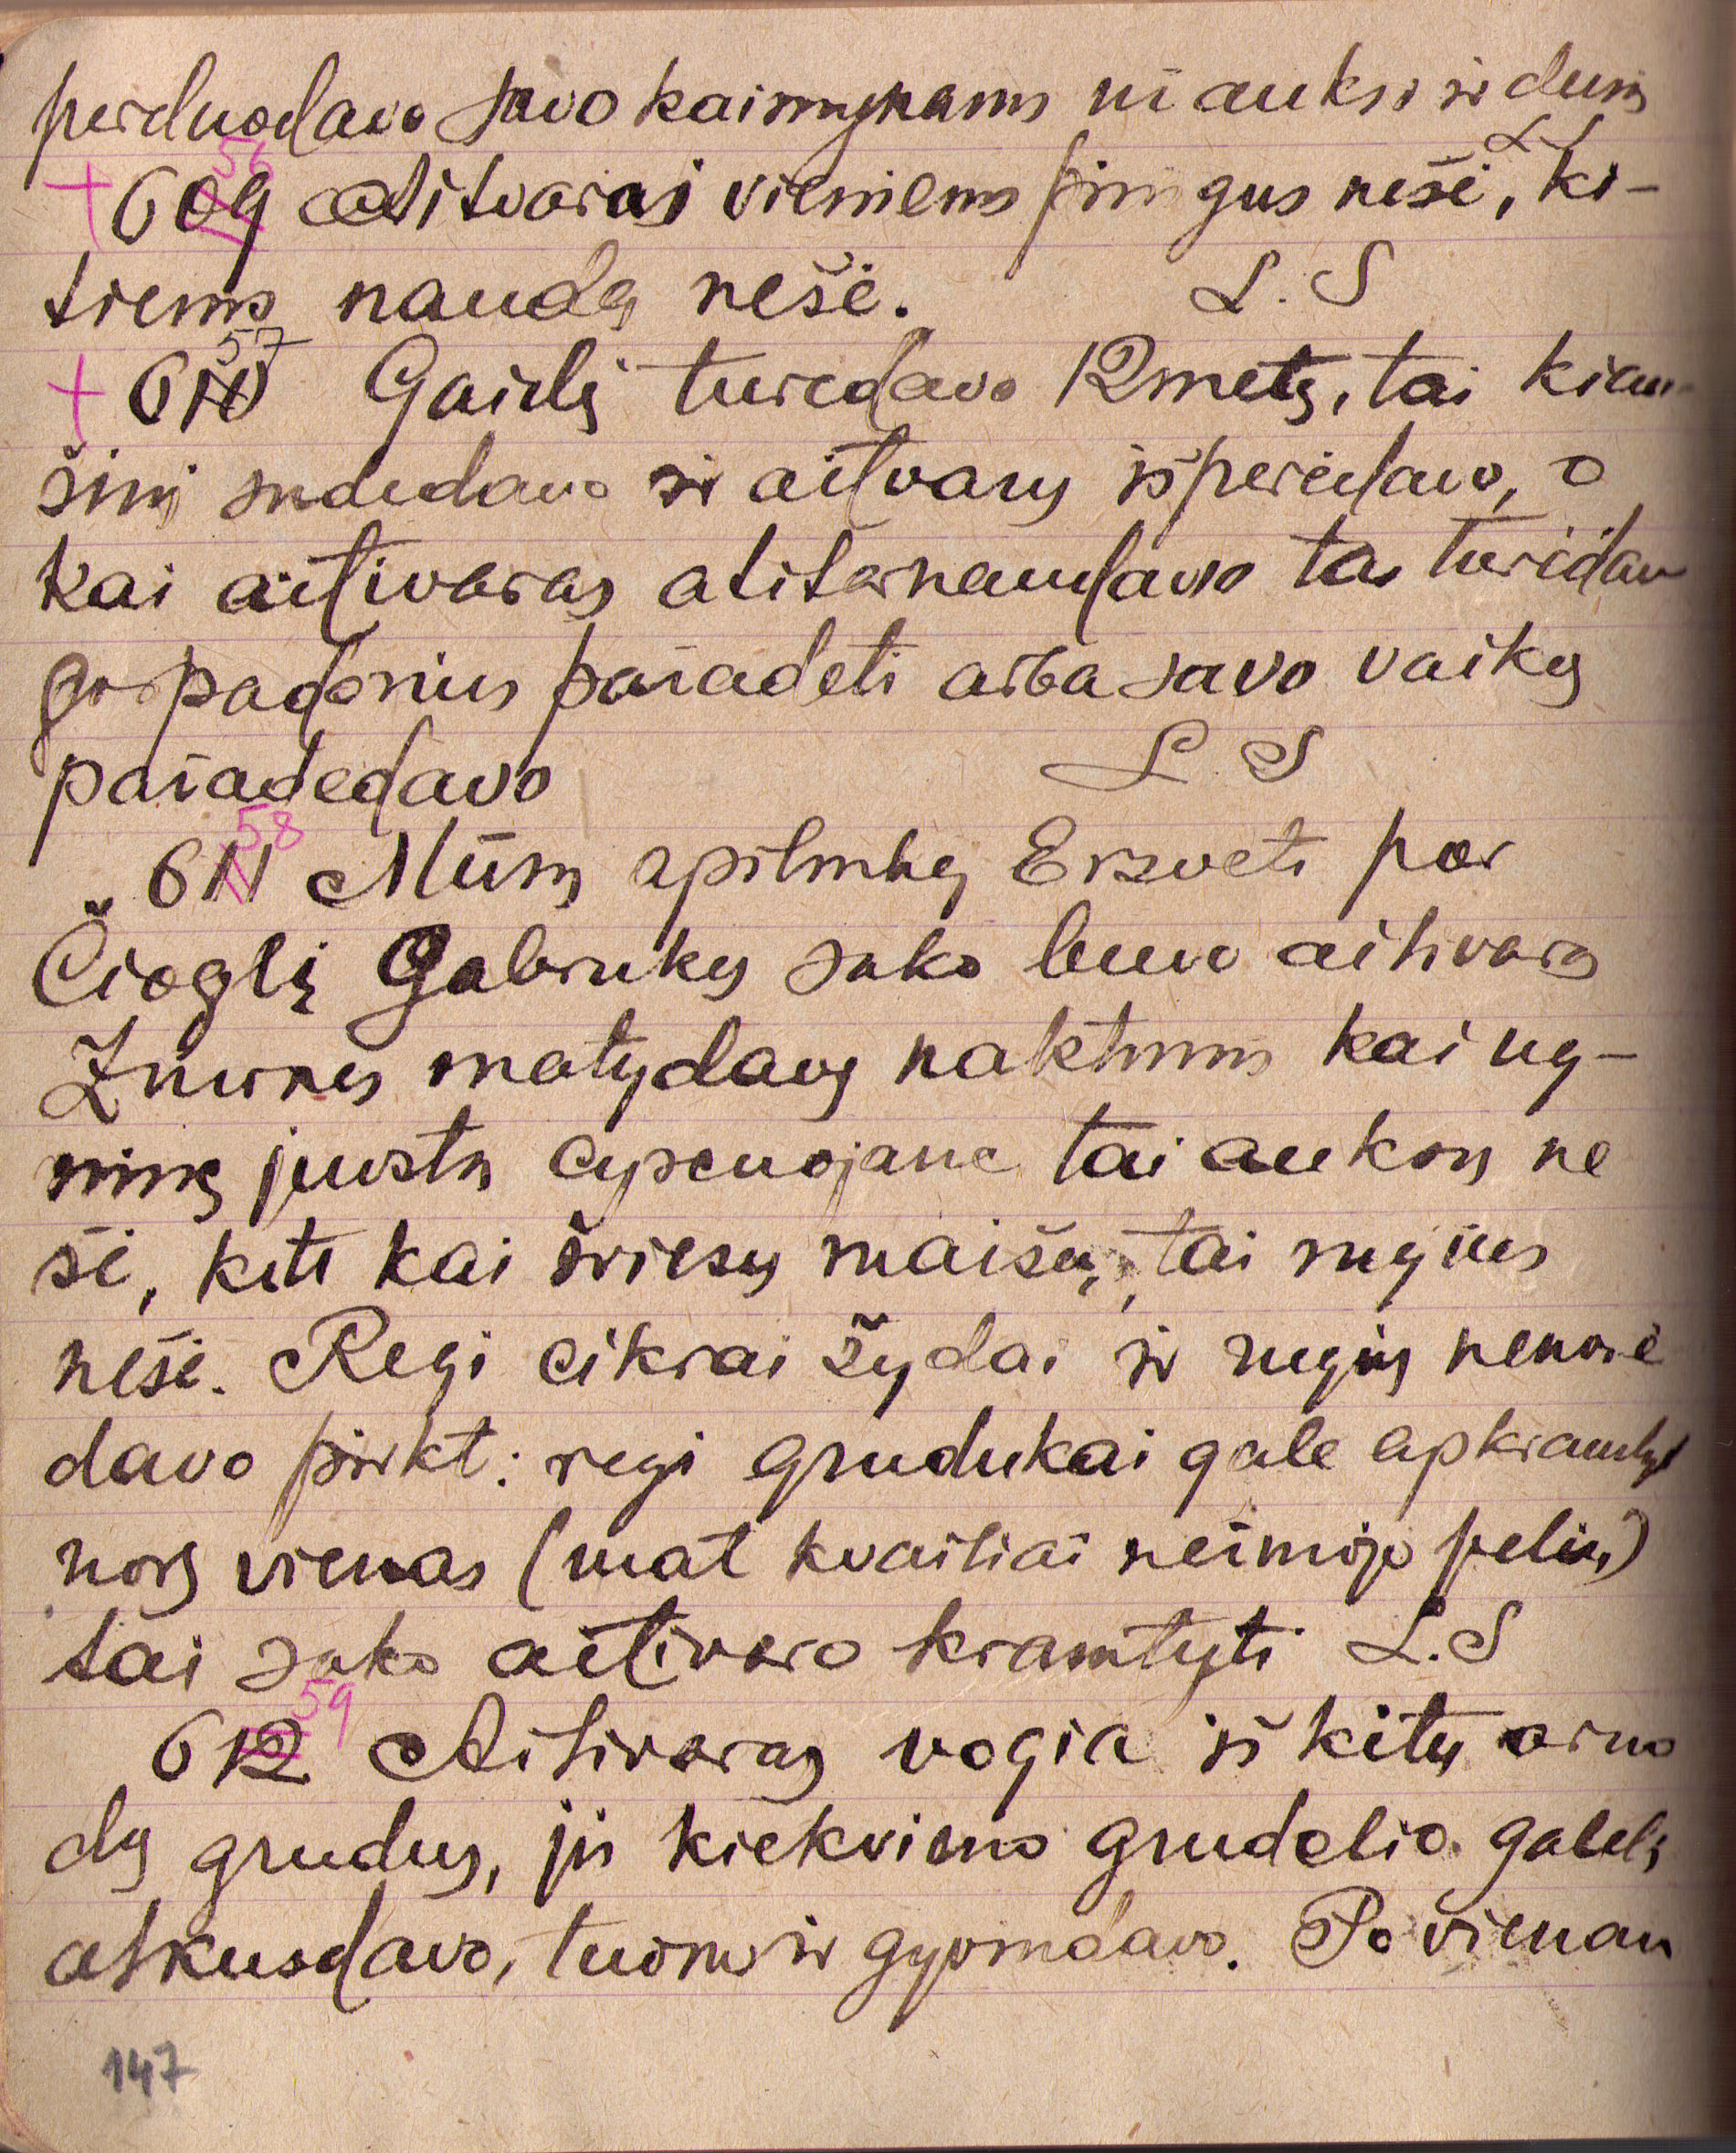 perduodavo savo kaimynams už auksą ir dumą
L.S
+ 609 56 Aitvarai vieniems pinigus nešė, ki-
tiems naudą nešė. L.S
+ 610 57 Gaidį turėdavo 12 metų, tai kiau-
šinį sudėdavo ir aitvarą išperėdavo, o
kai aitivaras atitarnaudavo tas turėdavo
gaspadorius pažadėti arba savo vaiką
pažadėdavo L S
611 58 Mūsų apilinkėj Eržvėti par
Čioglį Gabrukas sako buvo aitivaras
Žmones matydavo naktimis kai ug-
ninę juostą tai auksą ne
šė, kiti kai šviesų maišą, tai rugius
neše. Regi cikrai žydai ir rugių nenorė
davo pirkt: regi grudukai gale apkramtyt
nors vienas (mat kvailiai neimojo pelių)
tai sako aitivaro kramtyti L.S
612 59 Aitivaras vogia iš kitų aruo
dų grudus, jis kiekvieno grudelio galelį
atkusdavo, tuomi ir gyvendavo. Po vienan
147